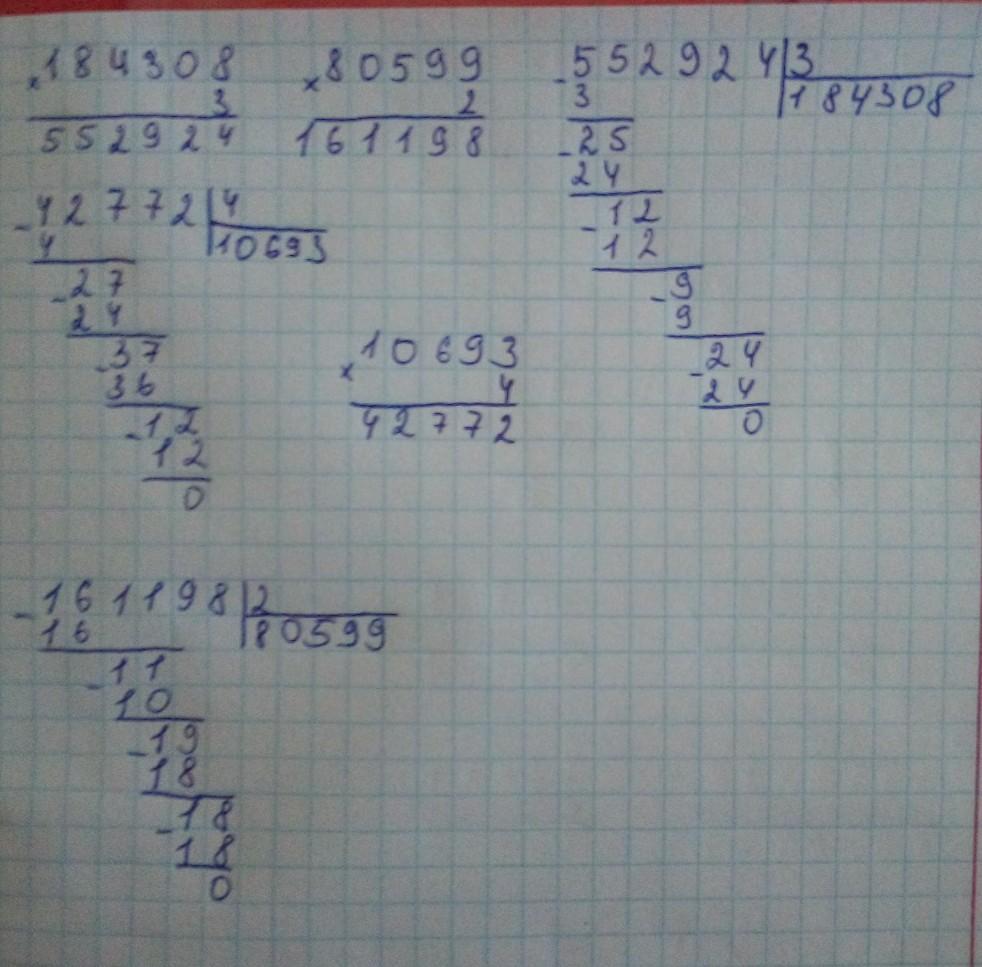 ×184308
3
552924
×80599
2
161198
-552924|3
3 184308
-25
24
-12
12
-9
9
-24
24
0
-42772|4
4 10693
-27
24
-37
36
-12
12
0
×10693
4
42772
-161198|2
16 80599
-11
10
-19
18
-18
18
0